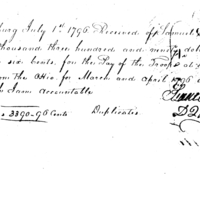 burg July 1st 1796 Received of Samuel
thousand three hundred and ninety dol
six Cents, for the Pay of the Troops at
the Ohio for March and April 1796
Same Accountable
3390-96 Cents Duplicates